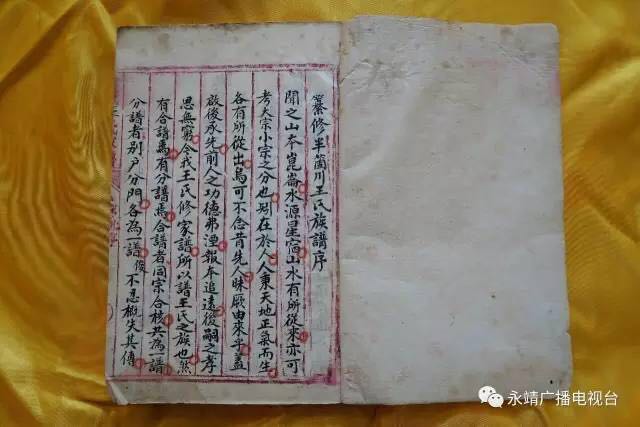 纂修半箇川王氏族譜序
聞之山本崑崙水源星宿山水有所從來亦可
考大宗小宗之分也矧在於人人秉天地正氣而生
各有所從出烏可不念昔先人昧厥由來乎蓋
啟後承先前人之功德弗湮報本追遠後嗣之孝
思無窮今我王氏修家譜所以譜王氏之族也然
有合譜焉有分譜焉合譜者同宗合枝共為一譜
分譜者別户分門各為譜後不忍概失其傳
永靖广播电视台